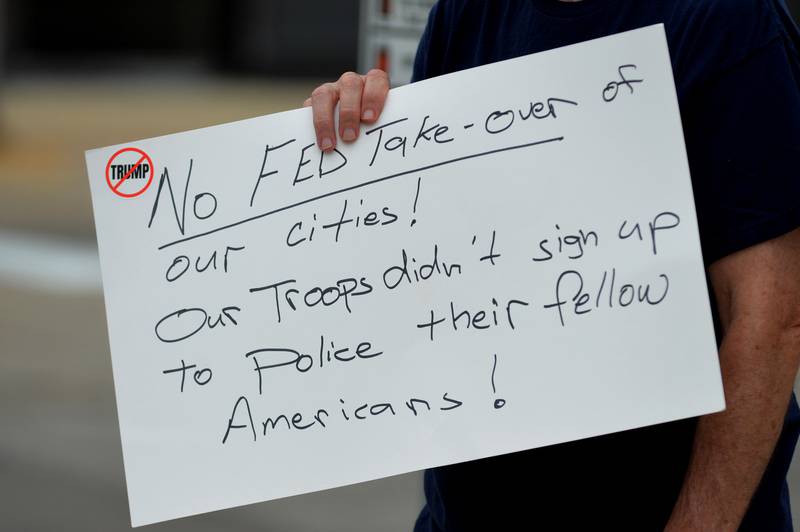 TRUMP
No FED Take-over of
our cities!
Our Troops didn't sign up
to Police their fellow
Americans!